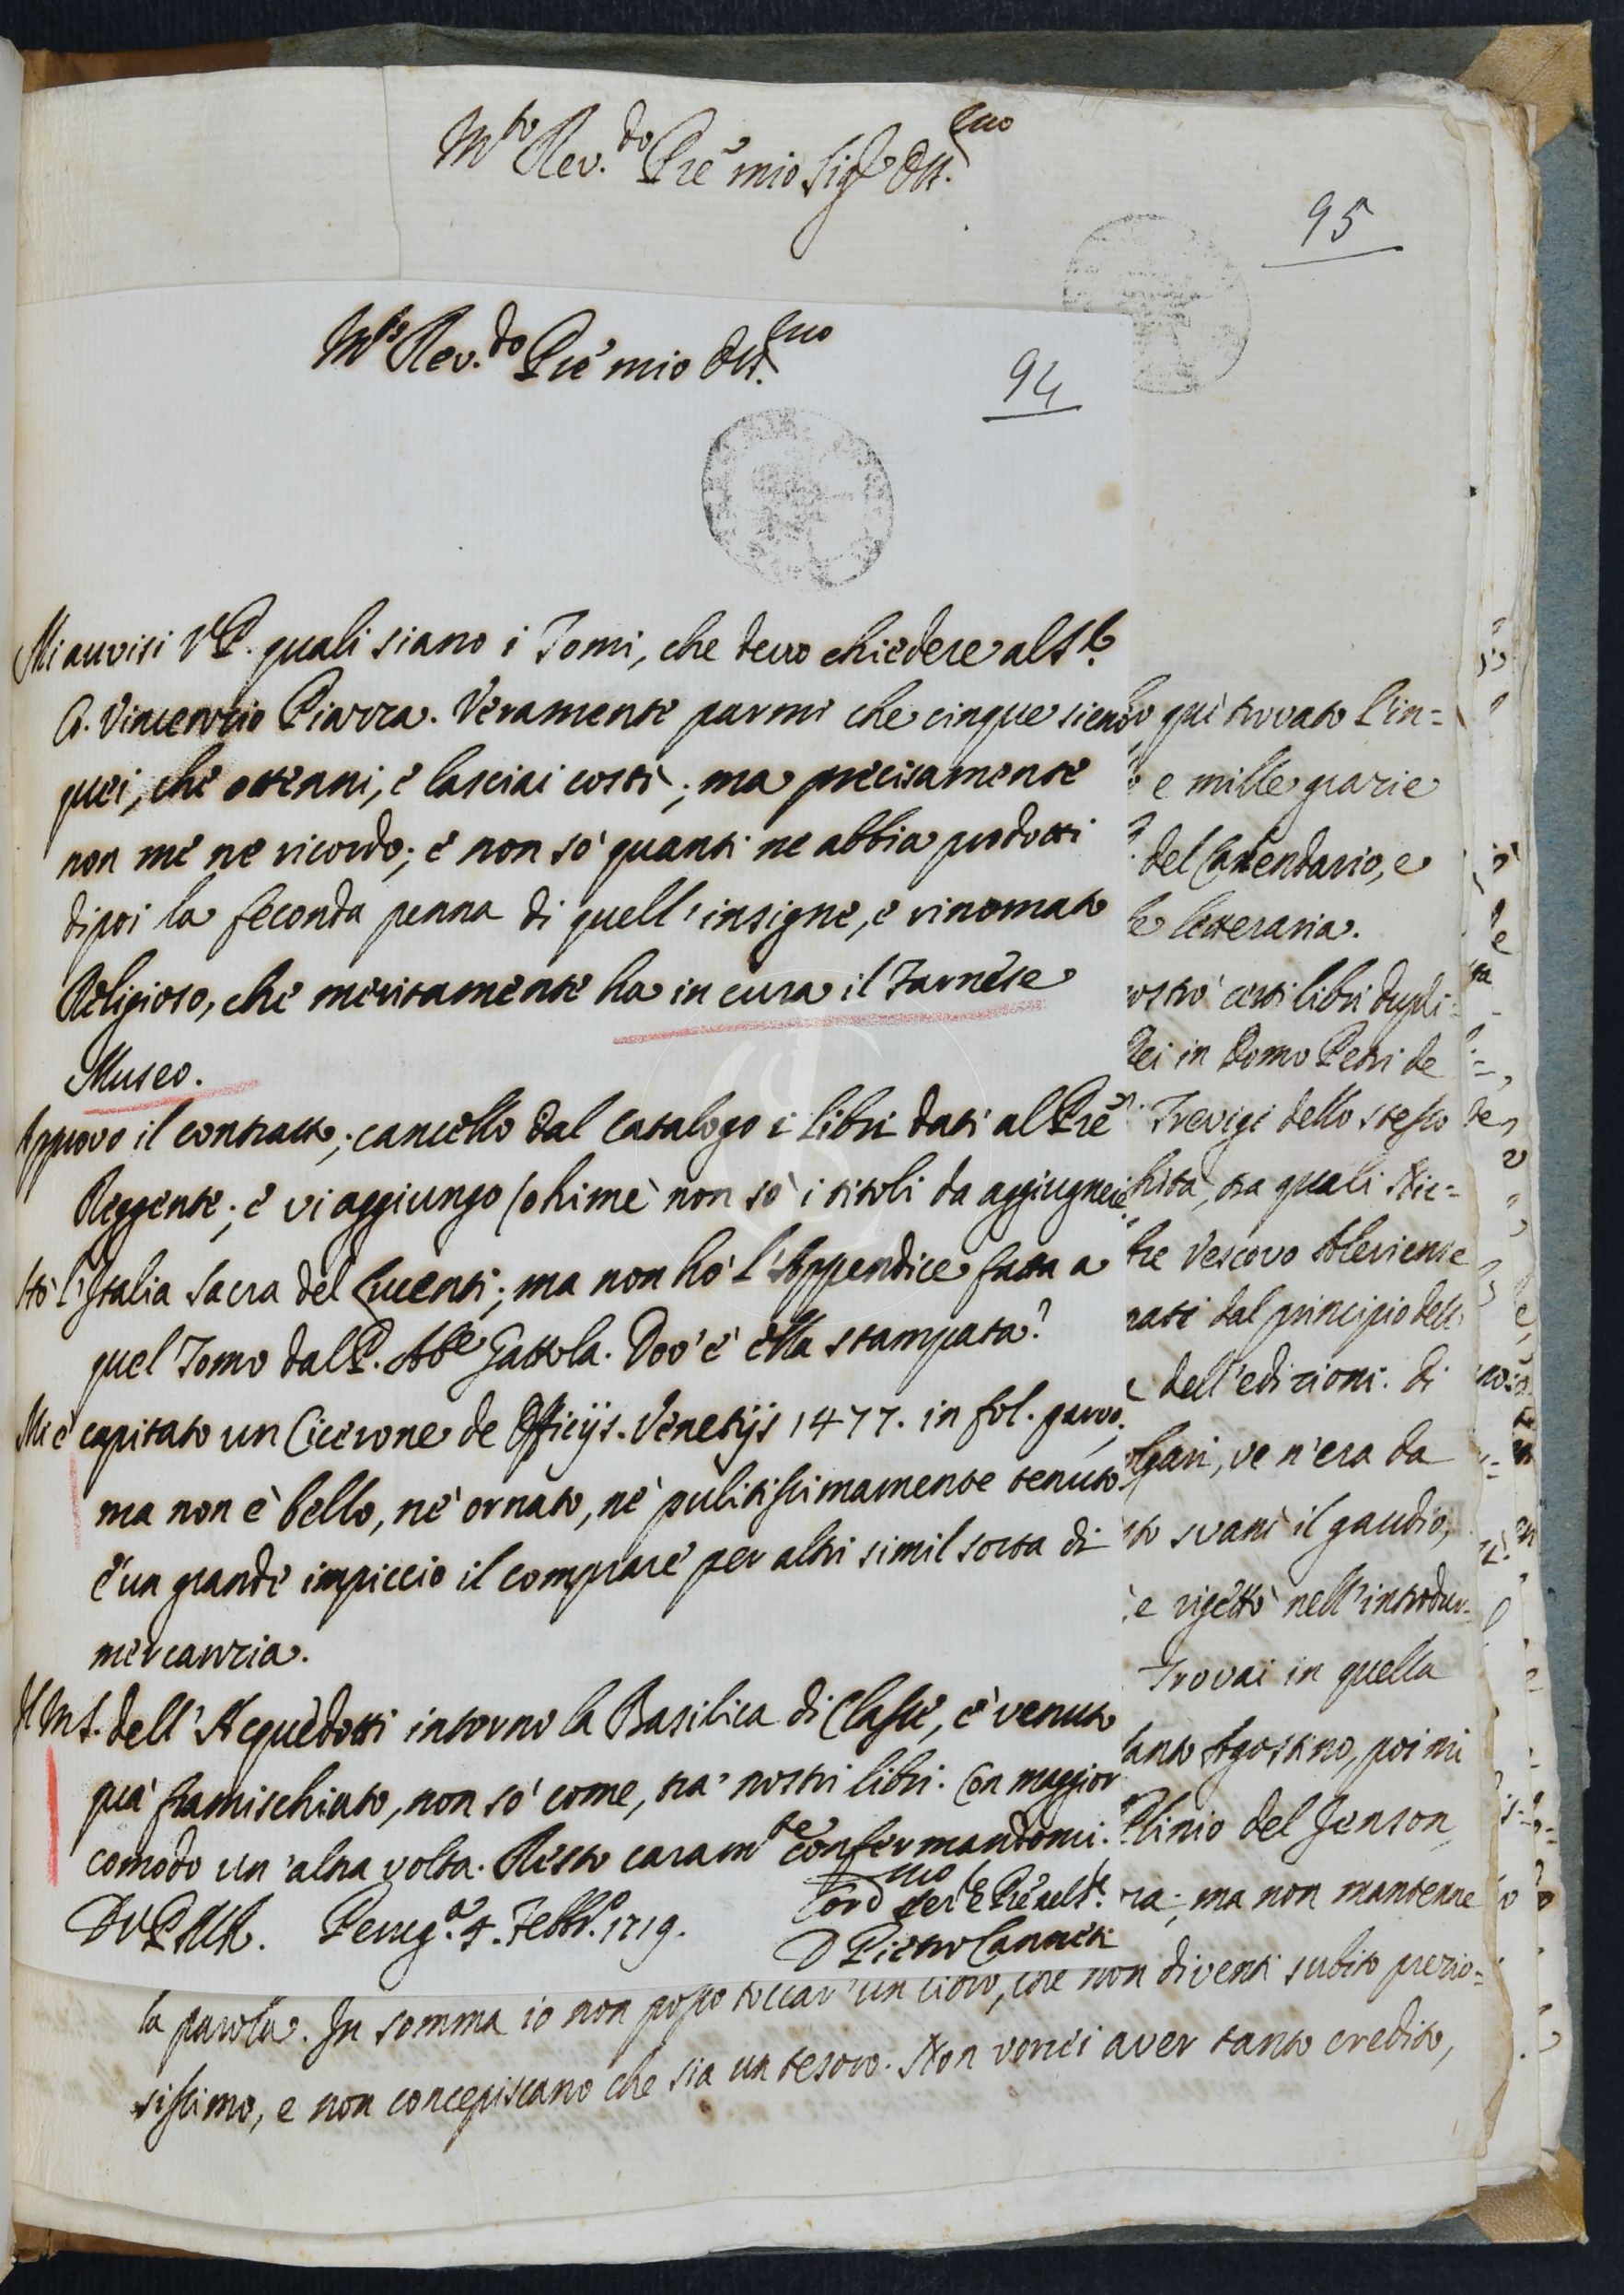 M.to Rev.do Prê mio Sig.r Oss.mo
95
M.to Rev.do Prê mio Oss.mo
94
Mi avvisi V.P. quali siano i Tomi, che devo chiedere al S.r
A. Vincenzio Piazza. Veramente parmi che cinque sieno
quei, che ottenni, e lasciai costì; ma precisamente
non me ne ricordo; e non sò quanti ne abbia prodotti
dipoi la feconda penna di quell'insigne, e rinomato
Religioso, che meritamente ha in cura il Farnese
Museo.
Approvo il contratto; cancello dal Catalogo i libri dati al Prê
Reggente; e vi aggiungo (ohimè non sò i titoli da aggiugnere
Hò l'Italia Sacra del Lucenti; ma non hò l'Appendice fatta a
quel Tomo dal P. Abe Gattola. Dov'è ella stampata?
Mi è capitato un Cicerone de Officijs. Venetijs 1477. in fol. parvo;
ma non è bello, nè ornato, nè pulitissimamente tenuto.
è un grande impiccio il comprare per altri simil sorta di
mercanzia.
Il MS. dell'Acquedotti intorno la Basilica di Classe, è venuto
quà framischiato, non sò come, tra' nostri libri. Con maggior
comodo un'altra volta. Resto caram.te confermandomi.
D.V.P.M.R. Perug.a 4. Febbr.o 1719.
D Pietro Canneti
quì trovato l'in=
e mille grazie
del Calendario, e
letteraria.
certi libri dupli=
in domo Petri de
Trevigi dello stesso
tra quali Nic=
Vescovo Aleriense
dal principio dell'
dell'edizioni. di
ve n'era da
svanì il gaudio,
e rigettò nell'introdur=
Trovai in quella
Agostino, poi mi
Plinio del Jenson
ma non mantenne
la parola. In somma io non posso toccar'un libro, che non diventi subito prezio=
sissimo, e non concepiscano che sia un tesoro. Non vorrei aver tanto credito,